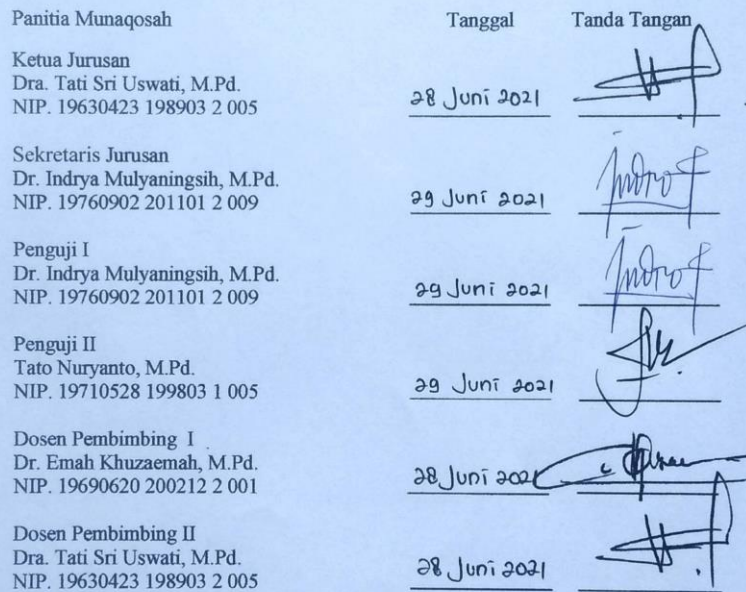 Panitia Munaqosah Tanggal Tanda Tangan
Ketua Jurusan
Dra. Tati Sri Uswati, M.Pd.
NIP. 19630423 198903 2 005 28 Juni 2021
Sekretaris Jurusan
Dr. Indrya Mulyaningsih, M.Pd.
NIP. 19760902 201101 2 009 29 Juni 2021
Penguji I
Dr. Indrya Mulyaningsih, M.Pd.
NIP. 19760902 201101 2 009 29 Juni 2021
Penguji II
Tato Nuryanto, M.Pd.
NIP. 19710528 199803 1 005 29 Juni 2021
Dosen Pembimbing I
Dr. Emah Khuzaemah, M.Pd.
NIP. 19690620 200212 2 001 28 Juni 2021
Dosen Pembimbing II
Dra. Tati Sri Uswati, M.Pd.
NIP. 19630423 198903 2 005 28 Juni 2021